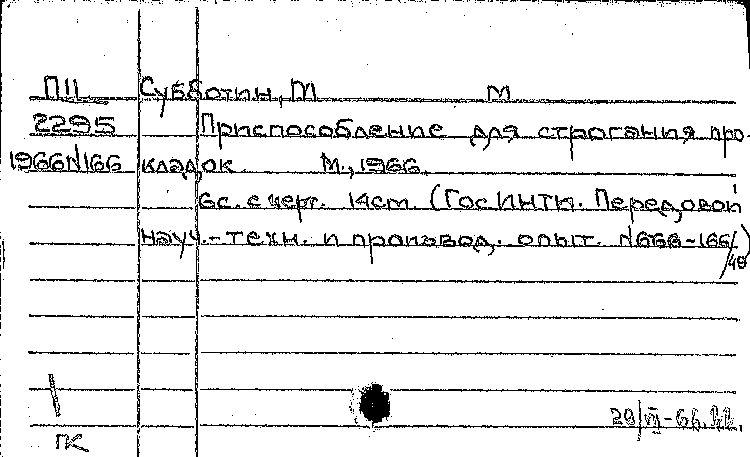 П11 Субботин, М М
2295 Приспособление для строгания про-
1966N166 кладок. М., 1966.
6с. с черт. 14см. (ГосИНТИ. Передовой
науч.-техн. и производ. опыт. N668-166/
/48)
ПК